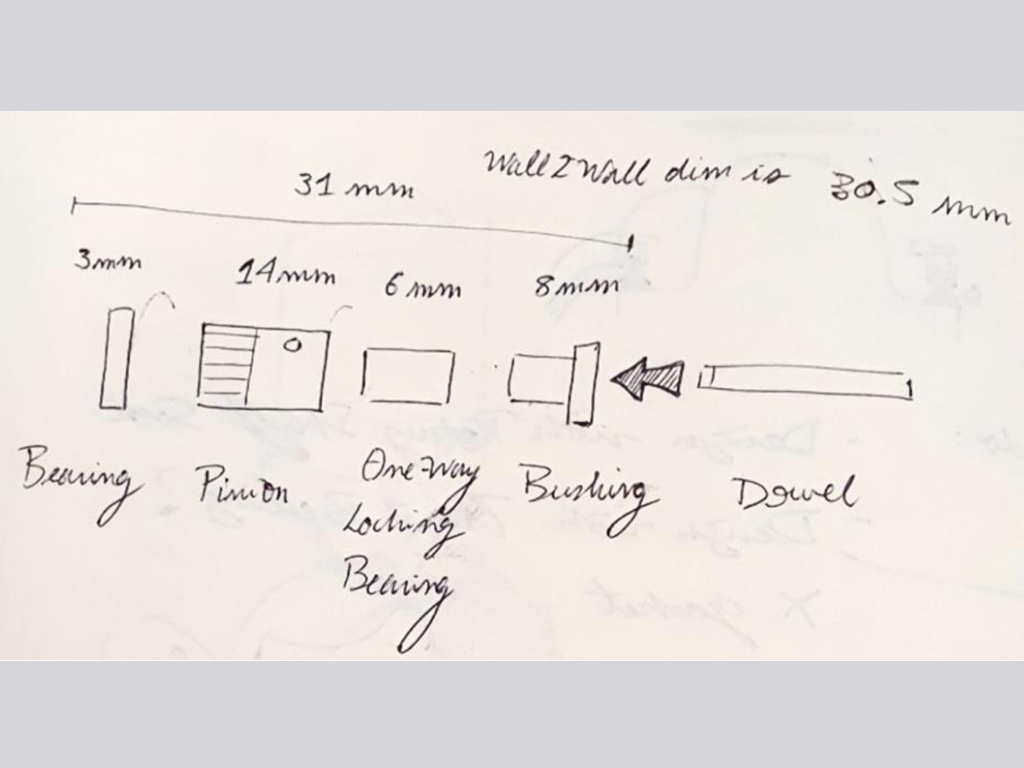 Wall2Wall dim is 30.5 mm
31 mm
3mm
14mm
6mm
8mm
Bearing
Pinion
One-Way
Locking
Bearing
Bushing
Dowel